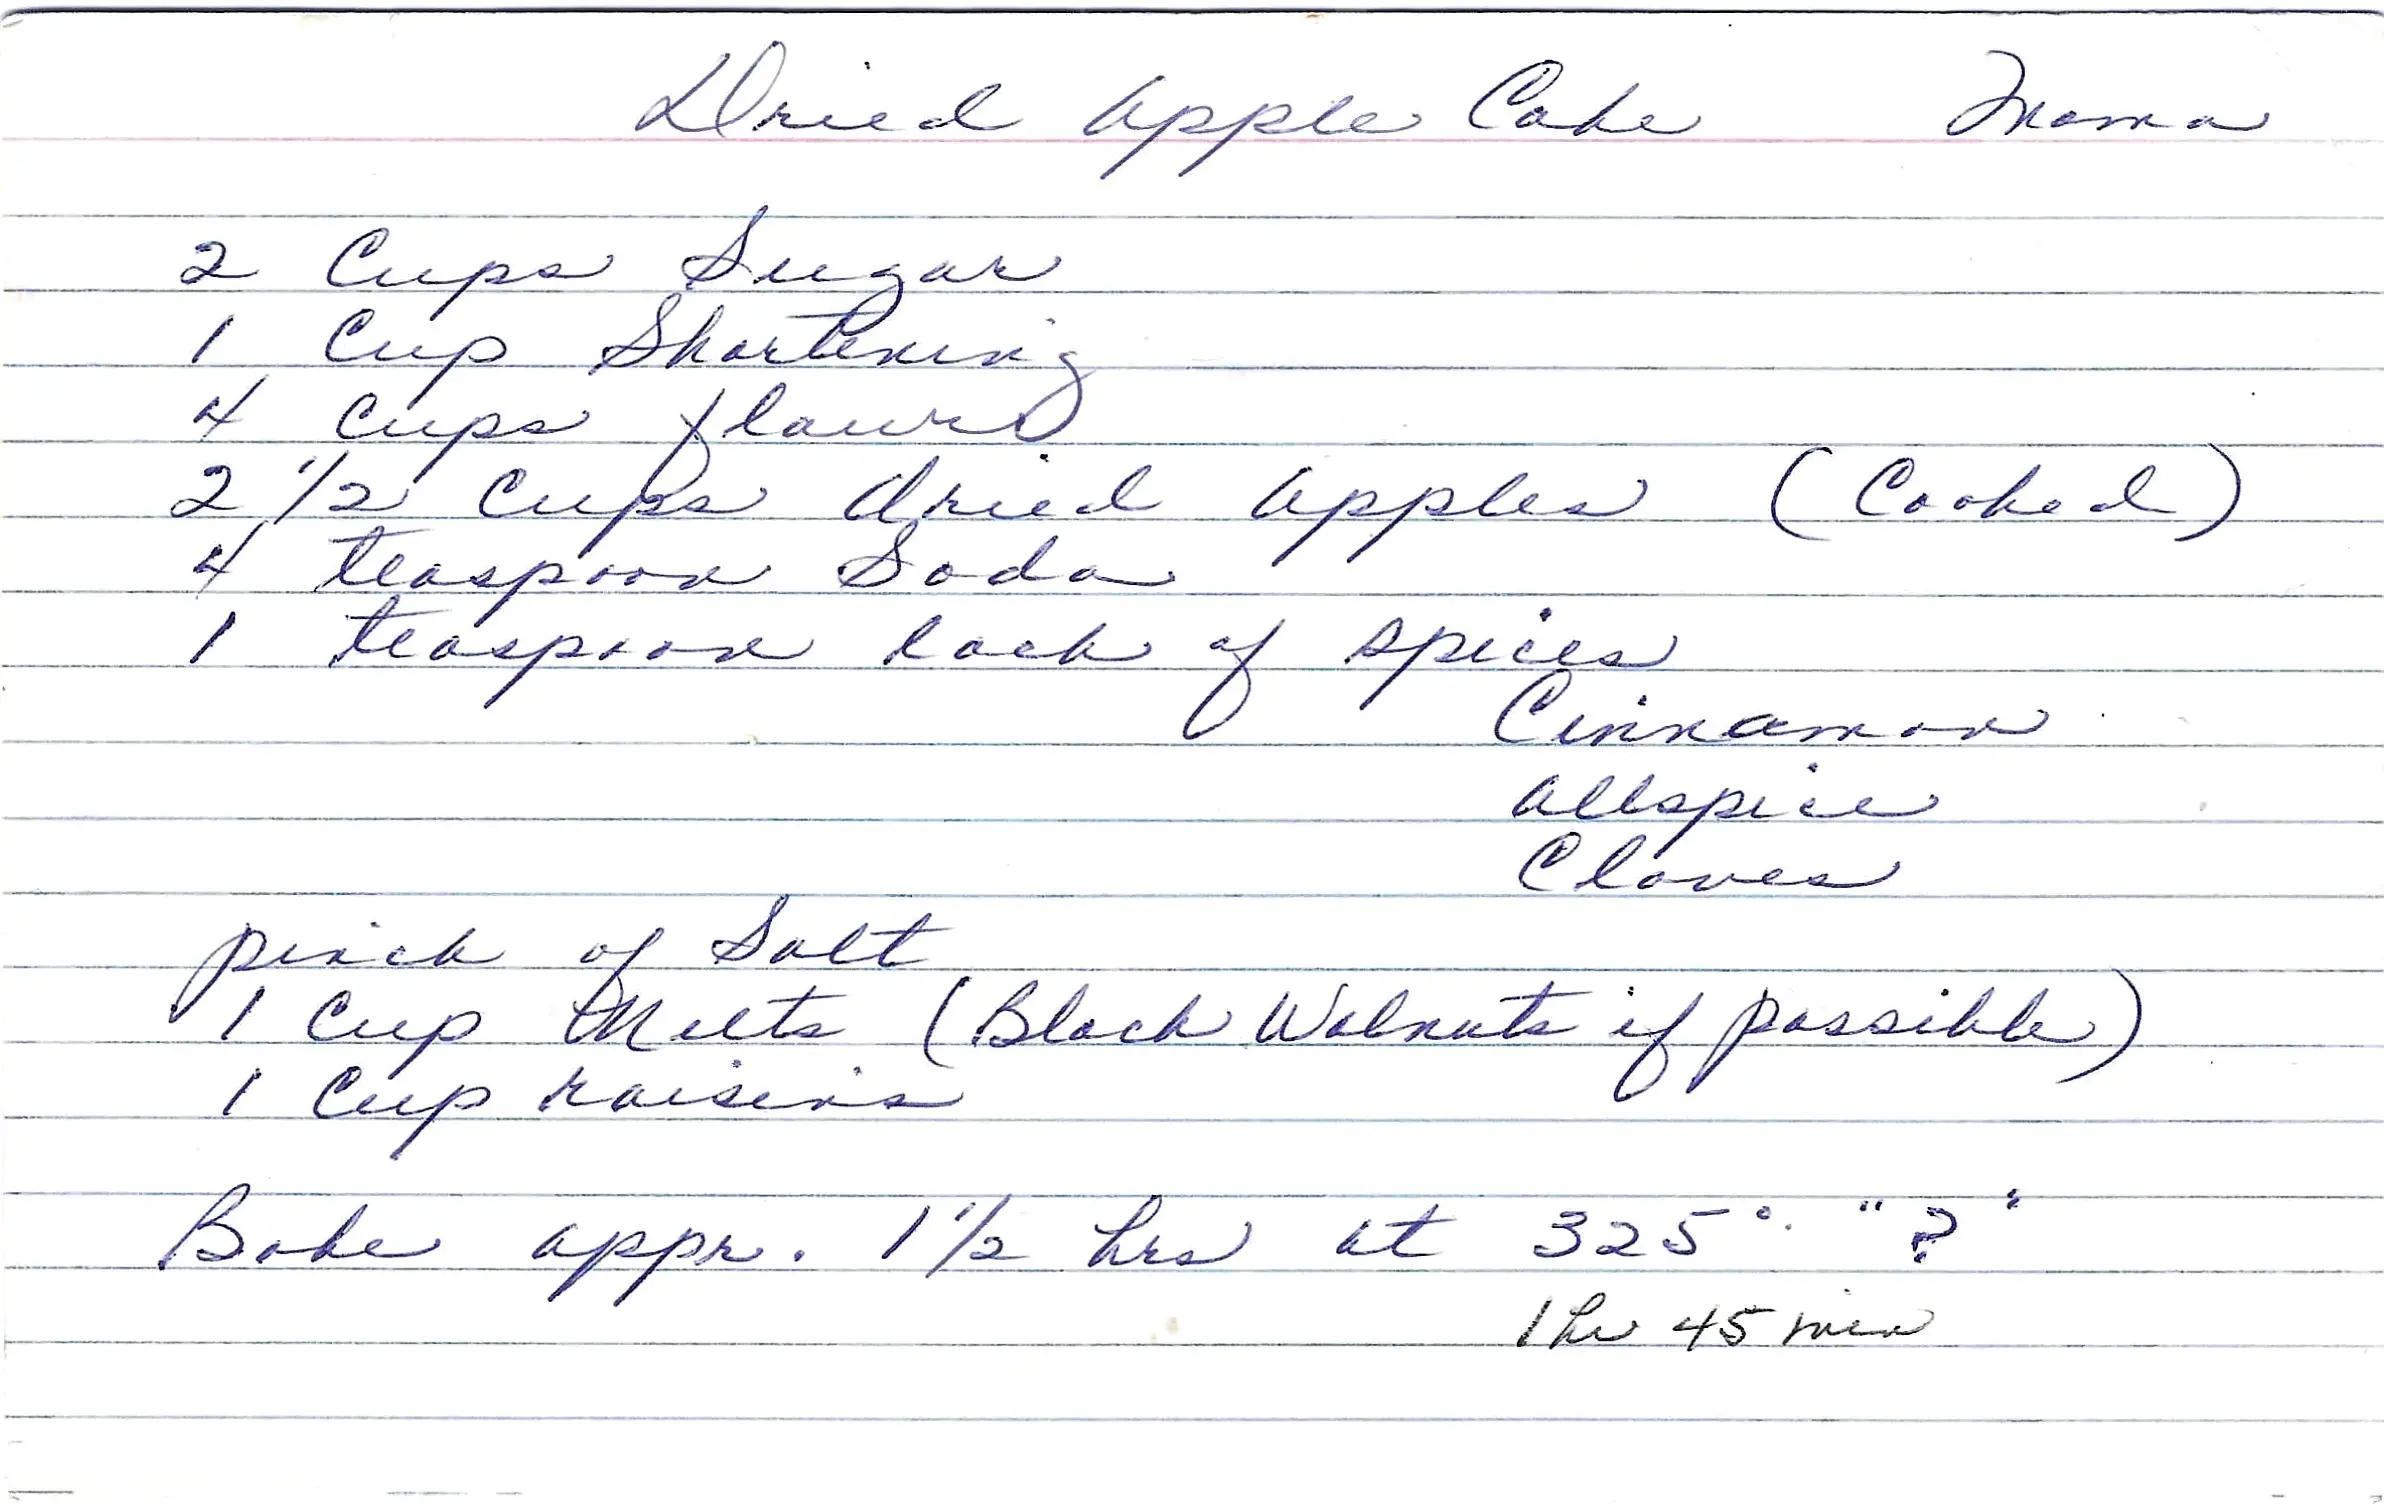 Dried Apple Cake Mama
2 Cups Sugar
1 Cup Shortening
4 Cups flour
2 1/2 Cups dried apples (Cooked)
4 teaspoon Soda
1 teaspoon each of spices
Cinnamon
allspice
Cloves
pinch of Salt
1 Cup Nuts (Black Walnuts if possible)
1 Cup raisins
Bake appr. 1 1/2 hrs at 325°. "?"
1 hr 45 min